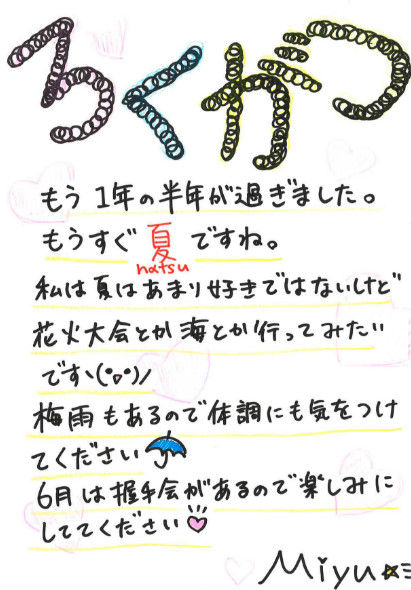 ろくがつ
もう1年の半年が過ぎました。
もうすぐ夏ですね。
natsu
私は夏はあまり好きではないけど
花火大会とか海とか行ってみたい
ですヽ(°▽°)ﾉ
梅雨もあるので体調にも気をつけ
てください☂
6月は握手会があるので楽しみに
しててください♡
Miyu☆ミ